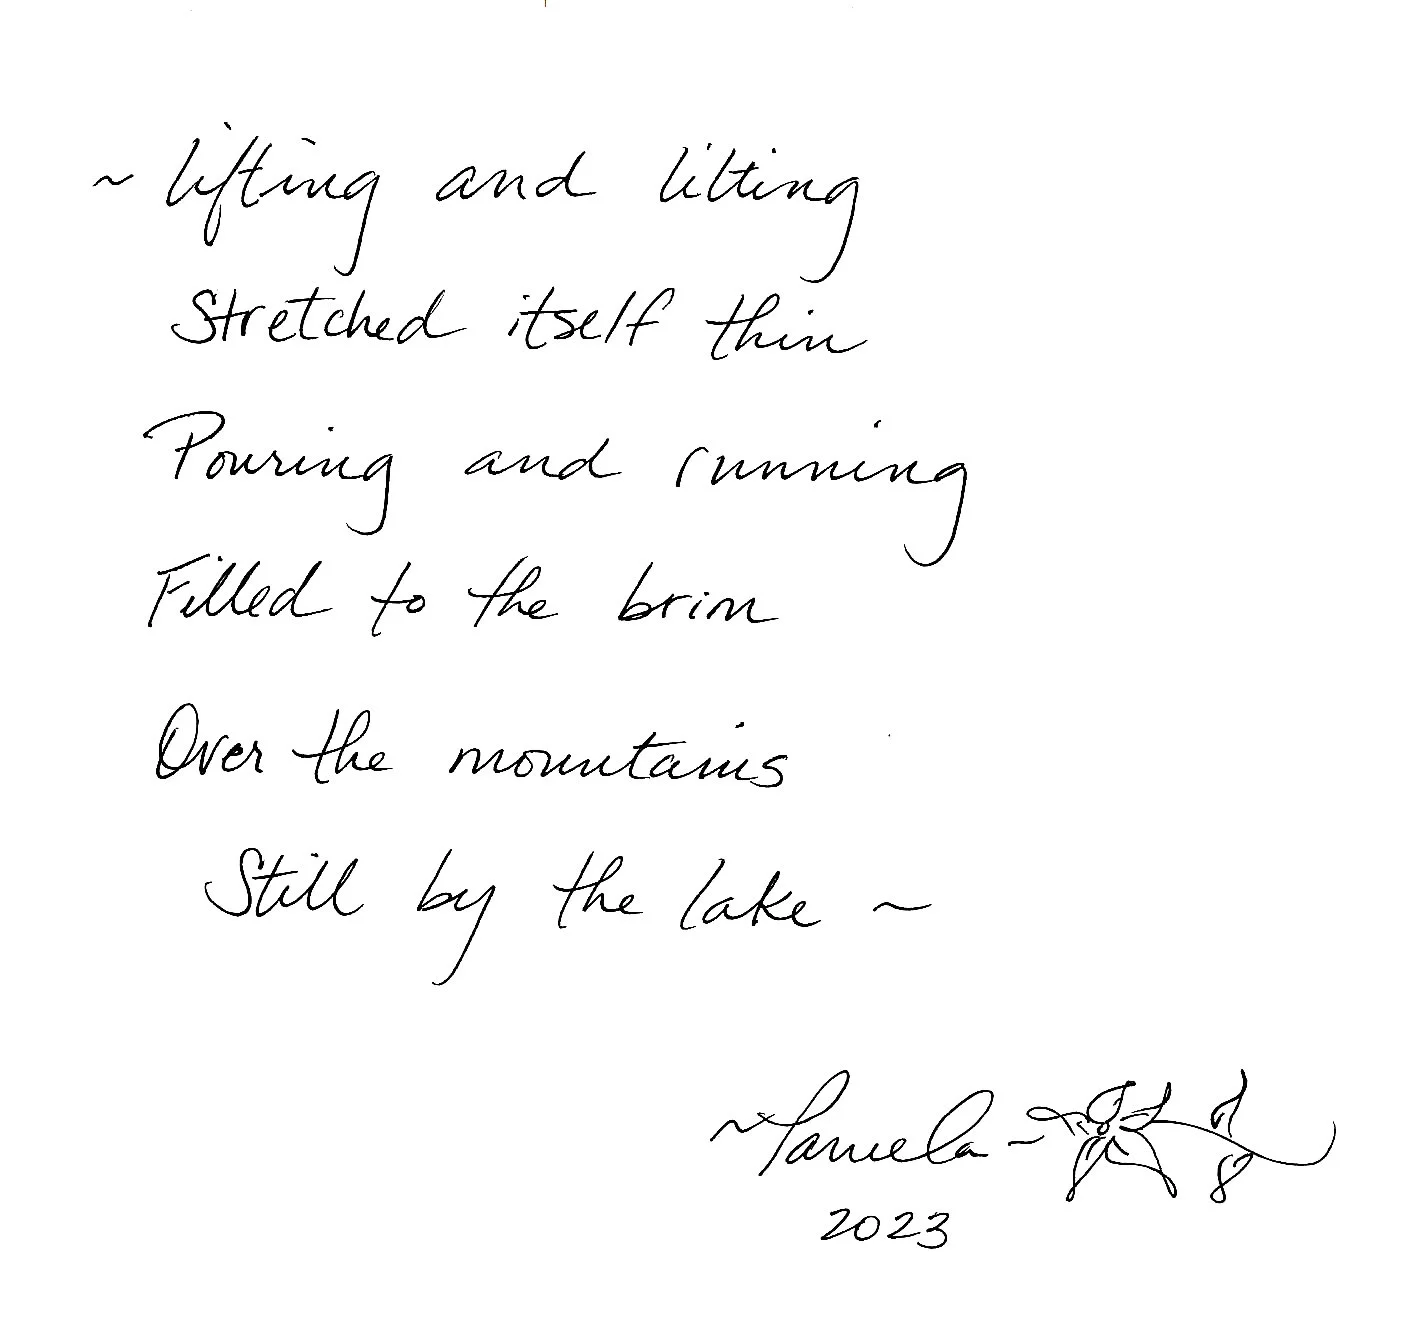 ~ lifting and lilting
Stretched itself thin
Pouring and running
Filled to the brim
Over the mountains
Still by the lake ~
~Pamela~
2023